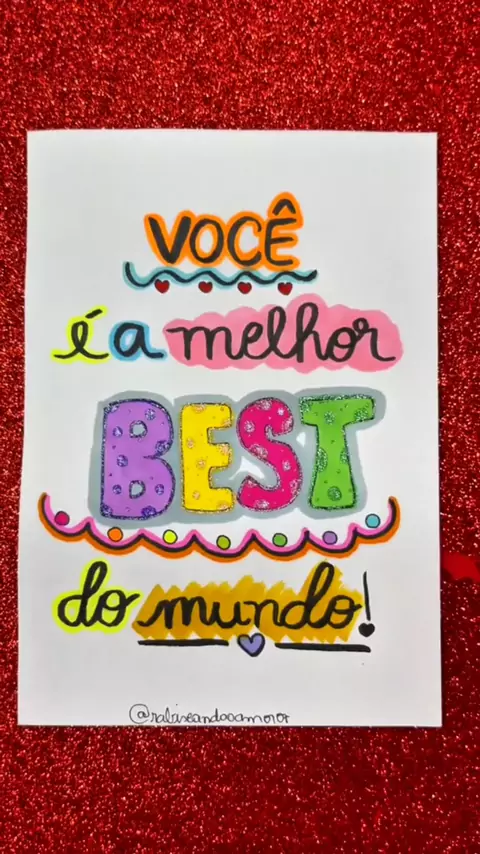 VOCÊ
é a melhor
BEST
do mundo!
@rabiscandooamoror